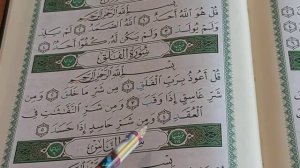 بِسْمِ اللَّهِ الرَّحْمَٰنِ الرَّحِيمِ
قُلْ هُوَ اللَّهُ أَحَدٌ ١ اللَّهُ الصَّمَدُ ٢ لَمْ يَلِدْ
وَلَمْ يُولَدْ ٣ وَلَمْ يَكُن لَّهُ كُفُوًا أَحَدٌ ٤
سُورَةُ الْفَلَقِ
بِسْمِ اللَّهِ الرَّحْمَٰنِ الرَّحِيمِ
قُلْ أَعُوذُ بِرَبِّ الْفَلَقِ ١ مِن شَرِّ مَا خَلَقَ ٢ وَمِن
شَرِّ غَاسِقٍ إِذَا وَقَبَ ٣ وَمِن شَرِّ النَّفَّاثَاتِ فِي
الْعُقَدِ ٤ وَمِن شَرِّ حَاسِدٍ إِذَا حَسَدَ ٥
النَّاسِ